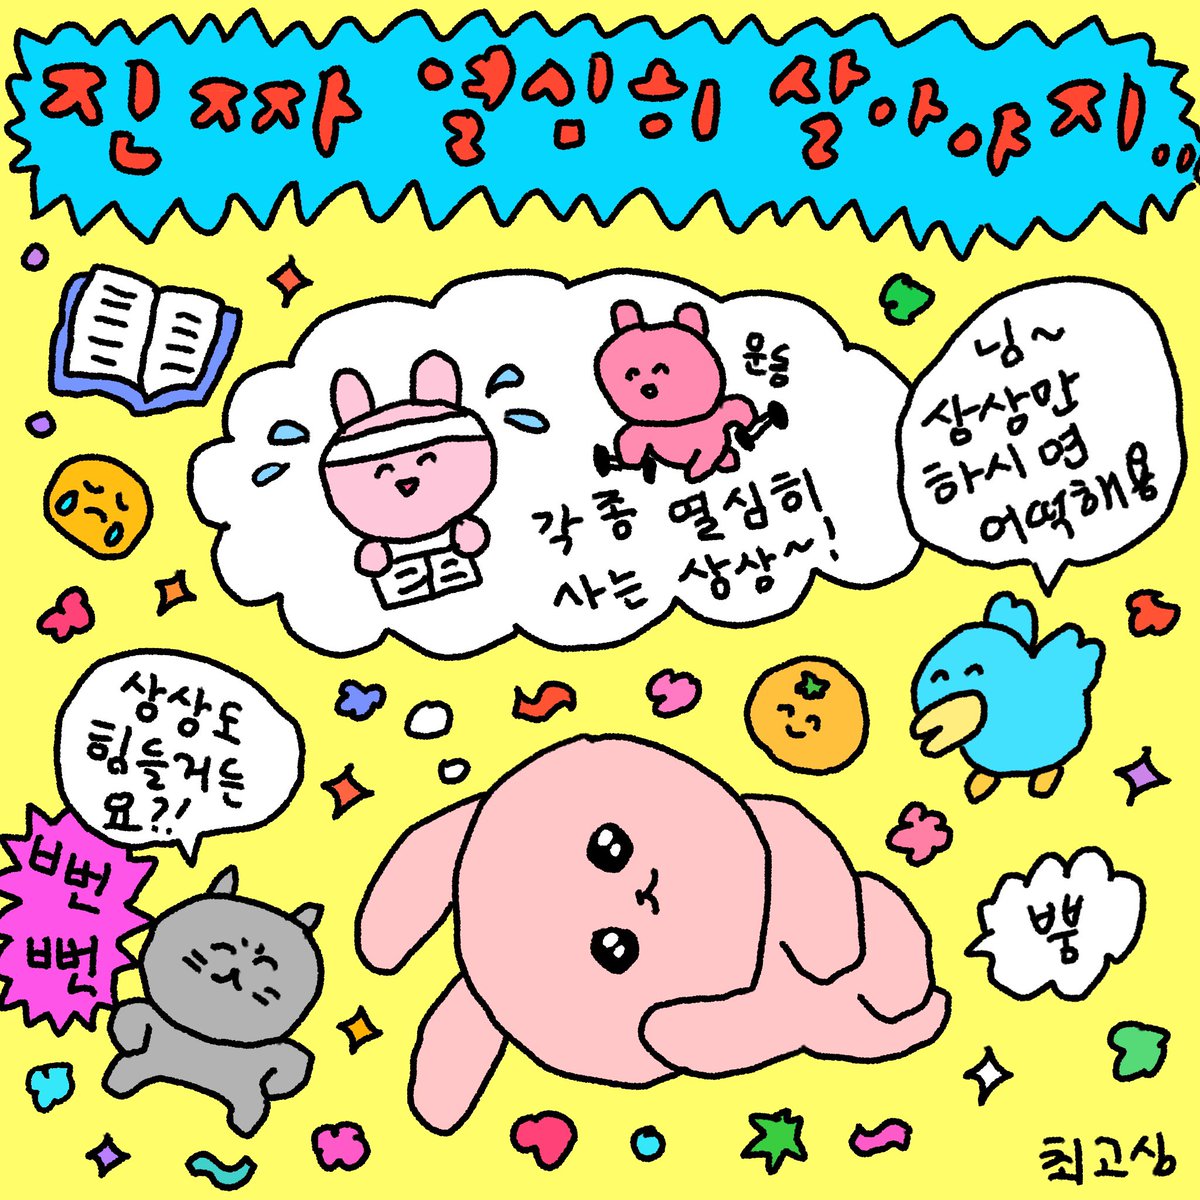 진짜 열심히 살아야지...
운동
각종 열심히
사는 상상~!
닝~
상상만
하시면
어떡해용
상상도
힘들거든
요?!
뻔
뻔
뿡
최고심